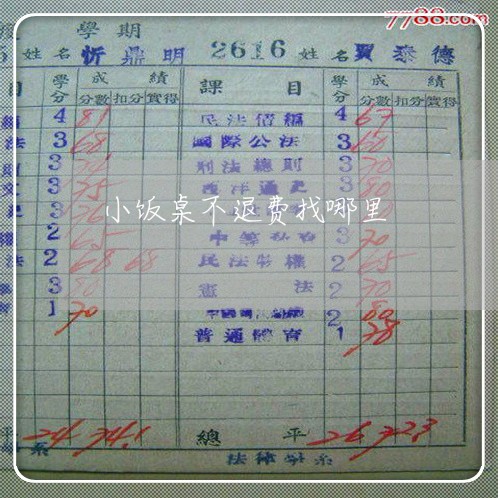 7788.com
學期
5 姓名 忻鼎明 2616 姓名 賈泰德
目 學分 成績 課目 學分 成績
分數 扣分 實得 分數 扣分 實得
4 81 民法債編 4 67
法 3 68 國際公法 3 60
3 刑法總則 3 70
3 75 西洋通史 3 80
小饭桌不退费找哪里
2 65 3 70
法 2 68 68 民法物權 2 65
3 80 憲法 2 70
1 70 2 80
普通體育 1 78
平 24 74.1 總平 26 72.3
系 法律學系